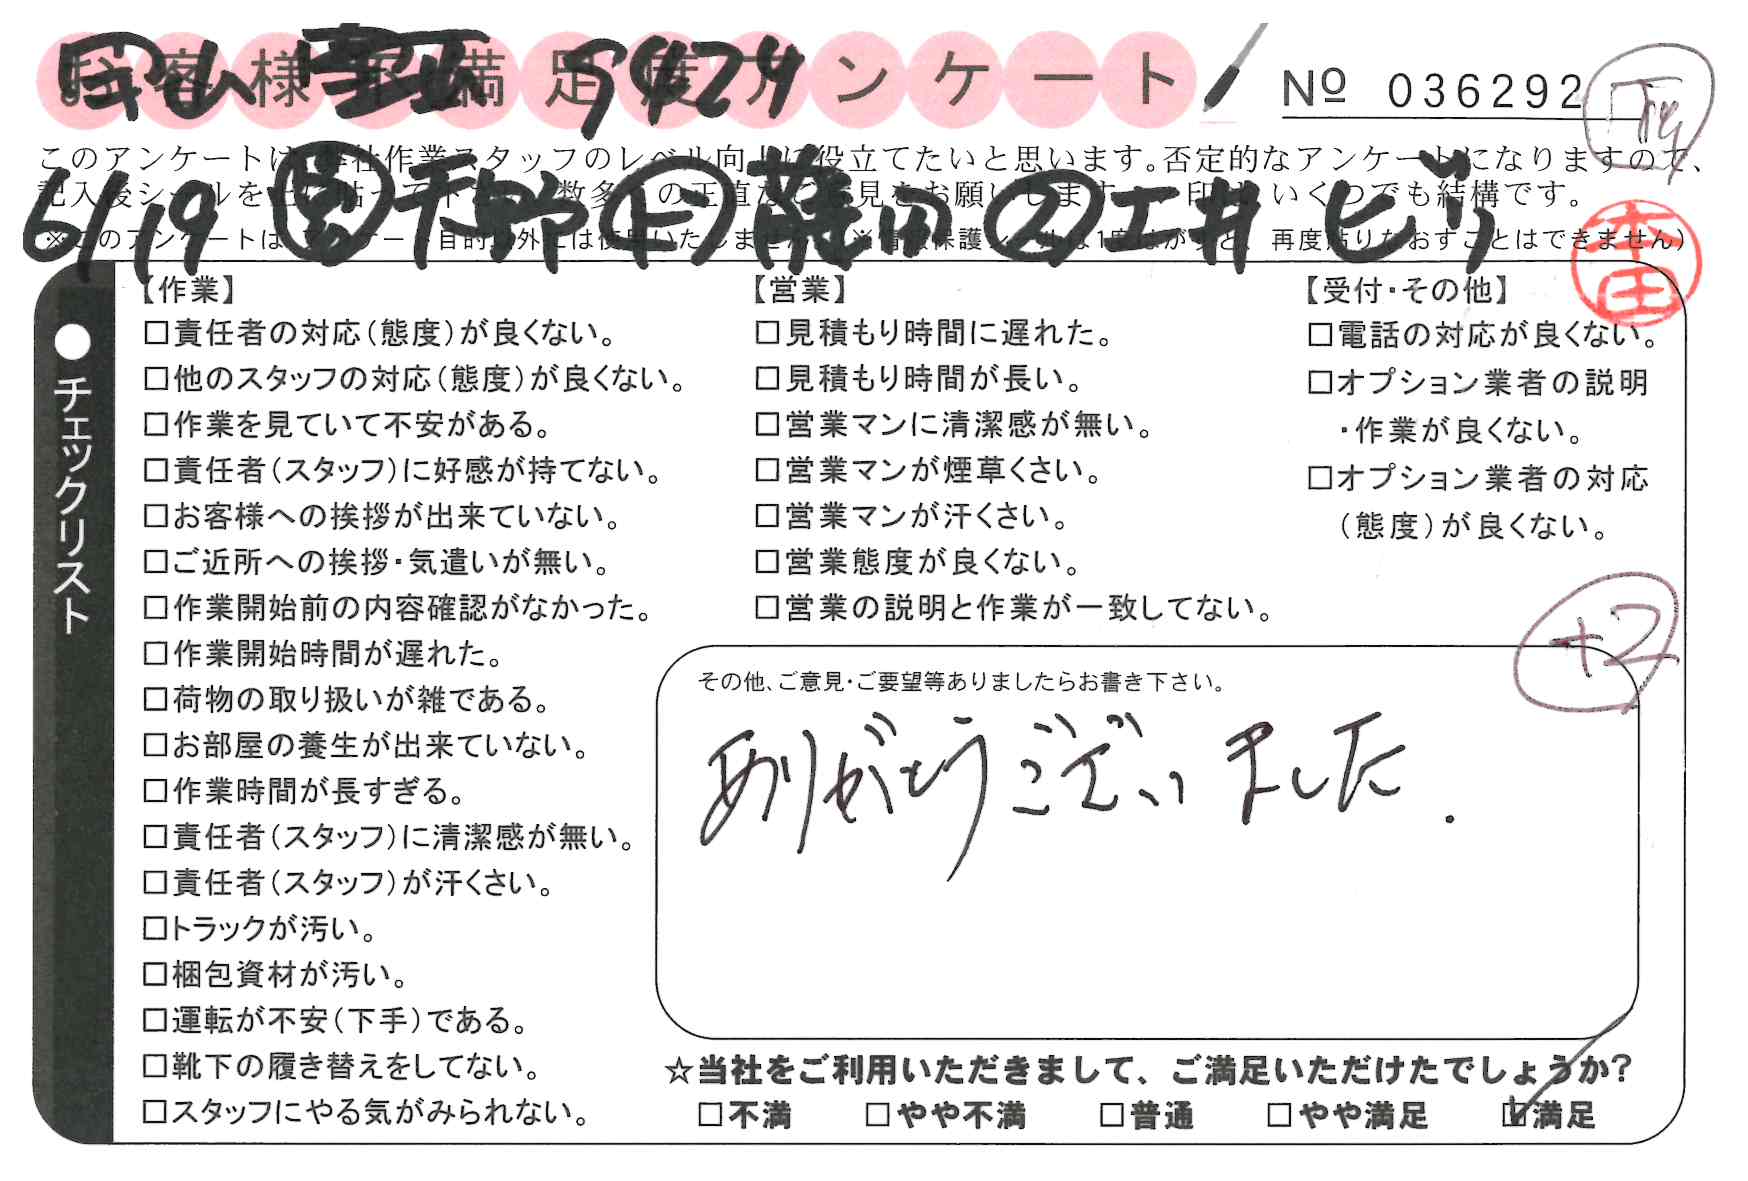 お客様不満足度アンケート
№ 036292
9424
このアンケートは、弊社作業スタッフのレベル向上に役立てたいと思います。否定的なアンケートになりますので、
記入後シールを上に貼って下さい。数多くの正直なご意見をお願いします。レ印はいくつでも結構です。
6/19 天野 藤田 工井 ビリ
※このアンケートは 再度貼りなおすことはできません)
本田
●チェックリスト
【作業】
□責任者の対応(態度)が良くない。
□他のスタッフの対応(態度)が良くない。
□作業を見ていて不安がある。
□責任者(スタッフ)に好感が持てない。
□お客様への挨拶が出来ていない。
□ご近所への挨拶・気遣いが無い。
□作業開始前の内容確認がなかった。
□作業開始時間が遅れた。
□荷物の取り扱いが雑である。
□お部屋の養生が出来ていない。
□作業時間が長すぎる。
□責任者(スタッフ)に清潔感が無い。
□責任者(スタッフ)が汗くさい。
□トラックが汚い。
□梱包資材が汚い。
□運転が不安(下手)である。
□靴下の履き替えをしてない。
□スタッフにやる気がみられない。
【営業】
□見積もり時間に遅れた。
□見積もり時間が長い。
□営業マンに清潔感が無い。
□営業マンが煙草くさい。
□営業マンが汗くさい。
□営業態度が良くない。
□営業の説明と作業が一致してない。
【受付・その他】
□電話の対応が良くない。
□オプション業者の説明
・作業が良くない。
□オプション業者の対応
(態度)が良くない。
+2
その他、ご意見・ご要望等ありましたらお書き下さい。
ありがとうございました.
☆当社をご利用いただきまして、ご満足いただけたでしょうか?
□不満 □やや不満 □普通 □やや満足 ☑満足